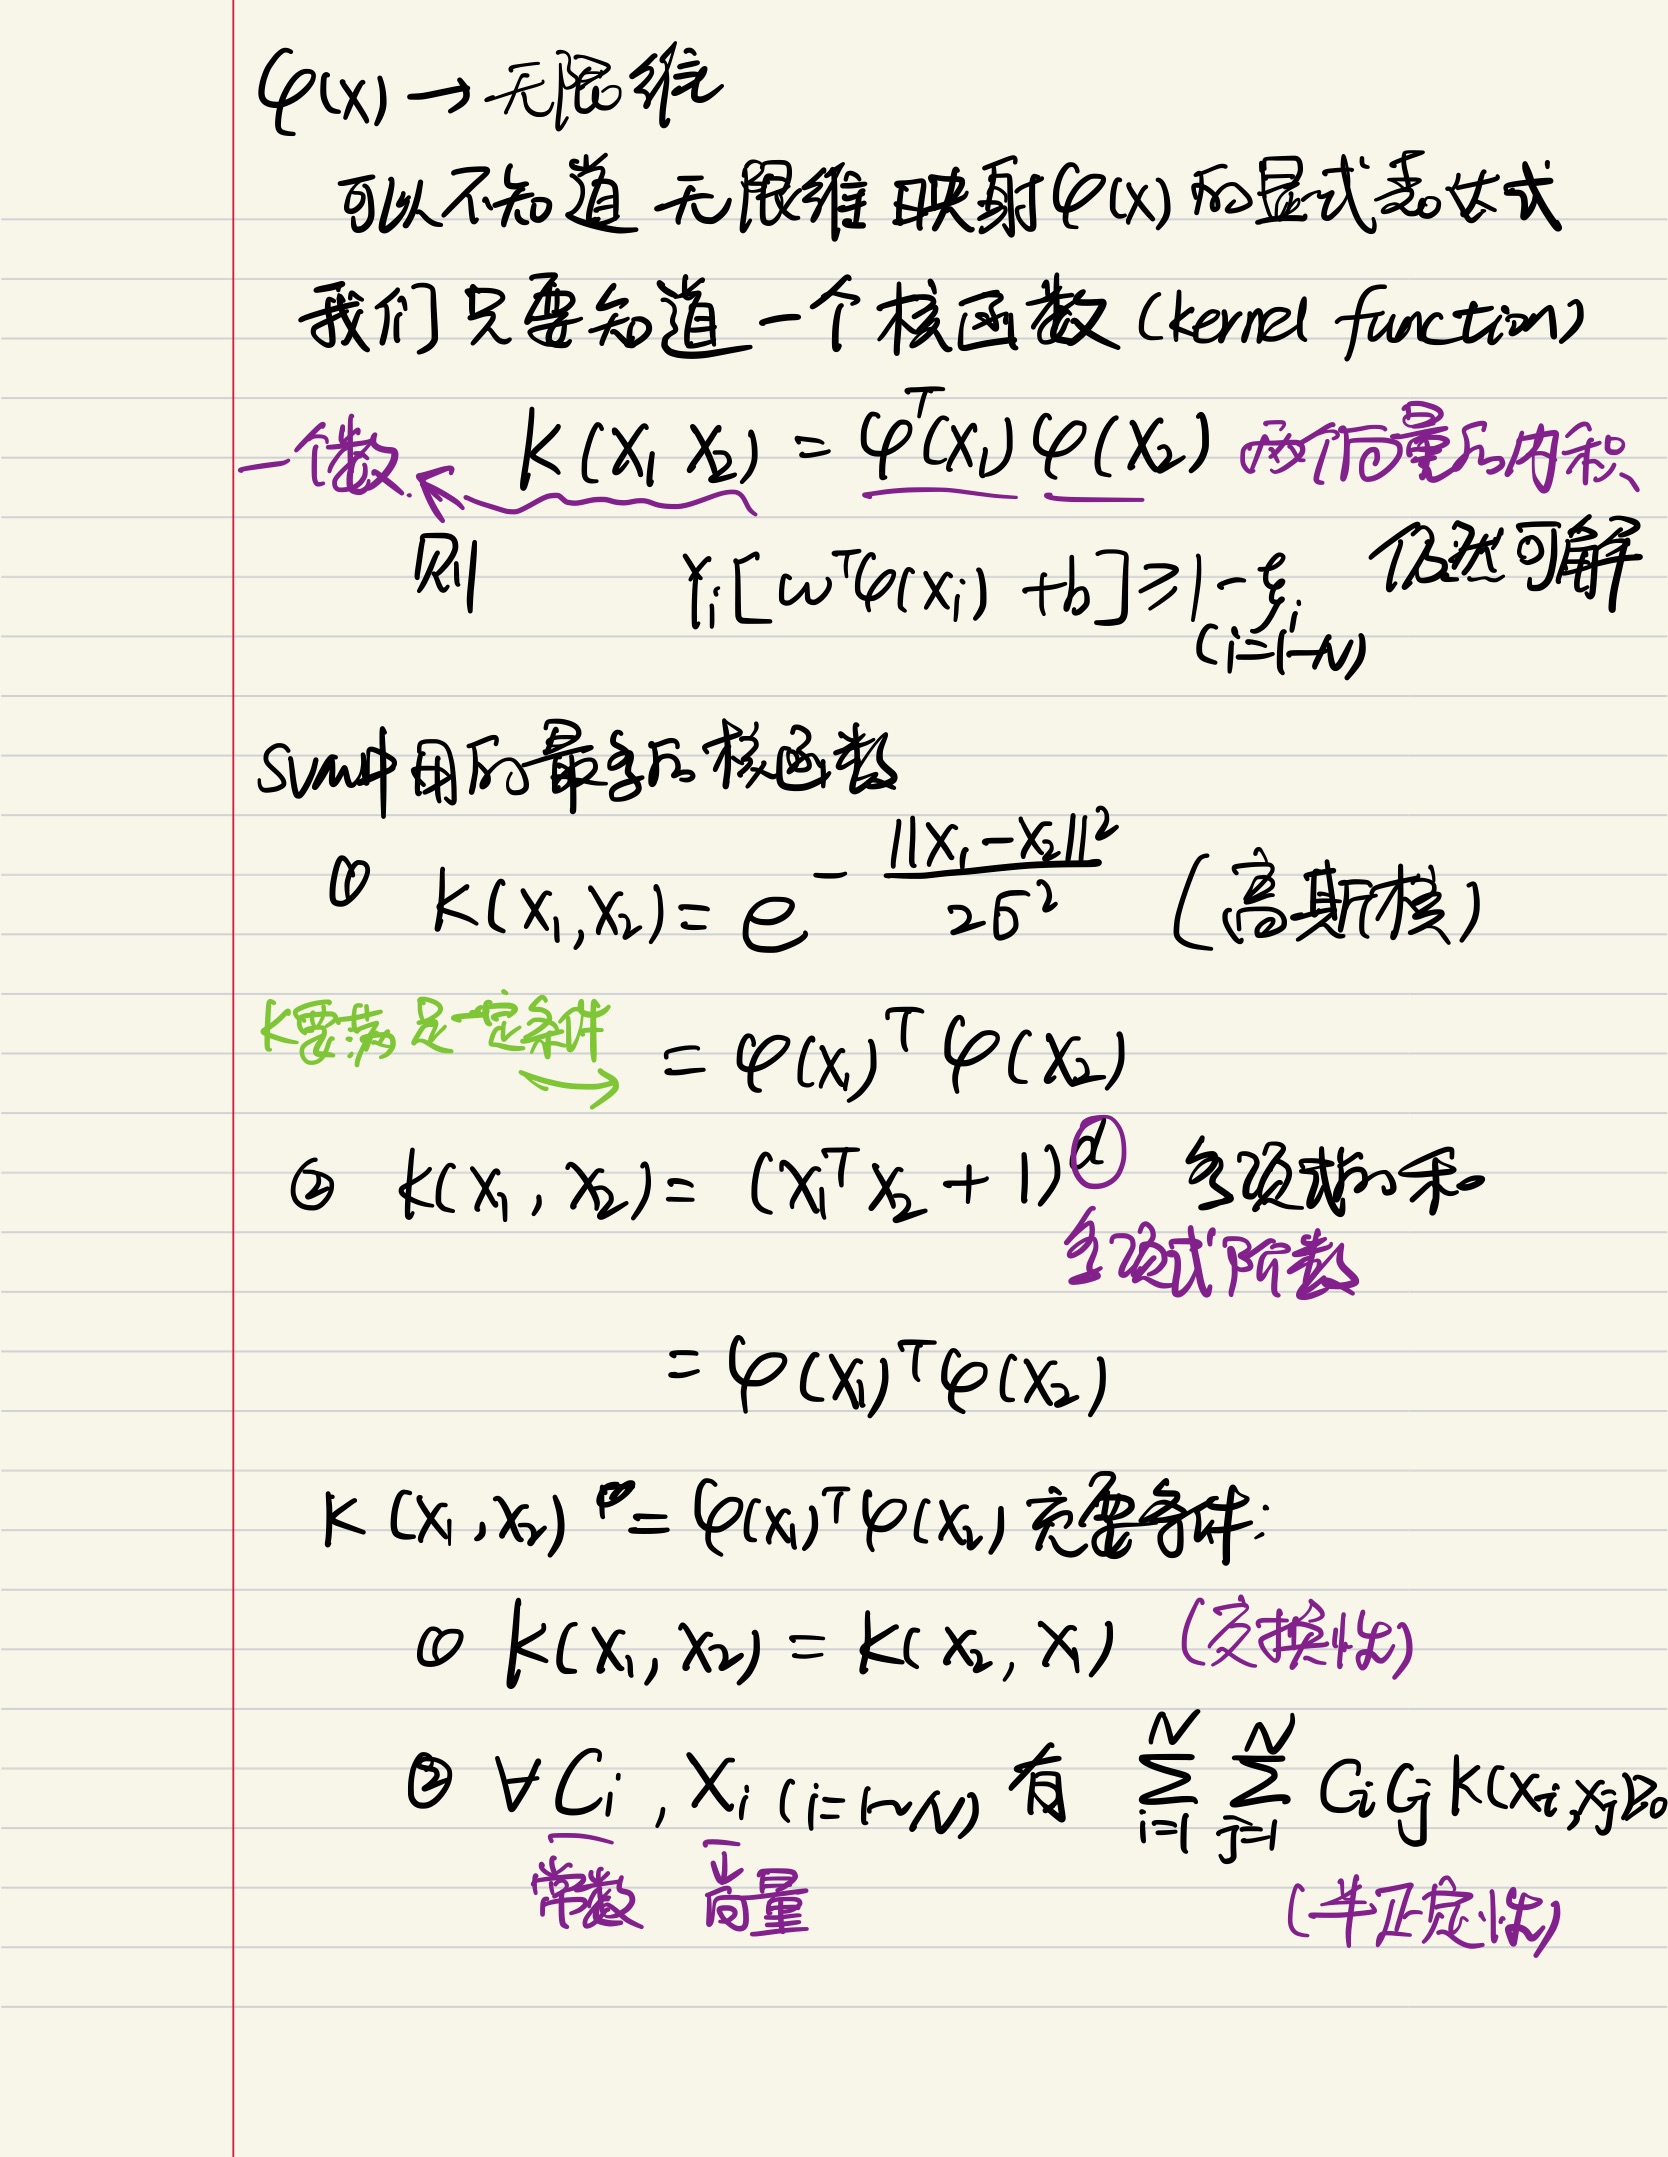 φ(x) → 无限维
可以不知道 无限维 映射φ(x) 的显式表达式
我们只要知道一个核函数 (kernel function)
一个数 K(X₁ X₂) = φᵀ(X₁) φ(X₂) 两个向量的内积
则 Yᵢ[ωᵀφ(Xᵢ) +b] ≥ 1-ξᵢ 仍然可解
(i=1~N)
SVM中用的最多的核函数
① K(X₁,X₂) = e^(- ||X₁-X₂||² / 2σ²) (高斯核)
K要满足一定条件 → = φ(X₁)ᵀ φ(X₂)
② K(X₁, X₂) = (X₁ᵀX₂ + 1)^d 多项式的和
多项式阶数
= φ(X₁)ᵀφ(X₂)
K(X₁,X₂) = φ(X₁)ᵀφ(X₂) 充要条件:
① K(X₁, X₂) = K(X₂, X₁) (交换性)
② ∀Cᵢ, Xᵢ (i=1~N) 有 ∑ᵢ₌₁ᴺ ∑ⱼ₌₁ᴺ CᵢCⱼ K(Xᵢ,Xⱼ)≥0
常数 向量 (半正定性)